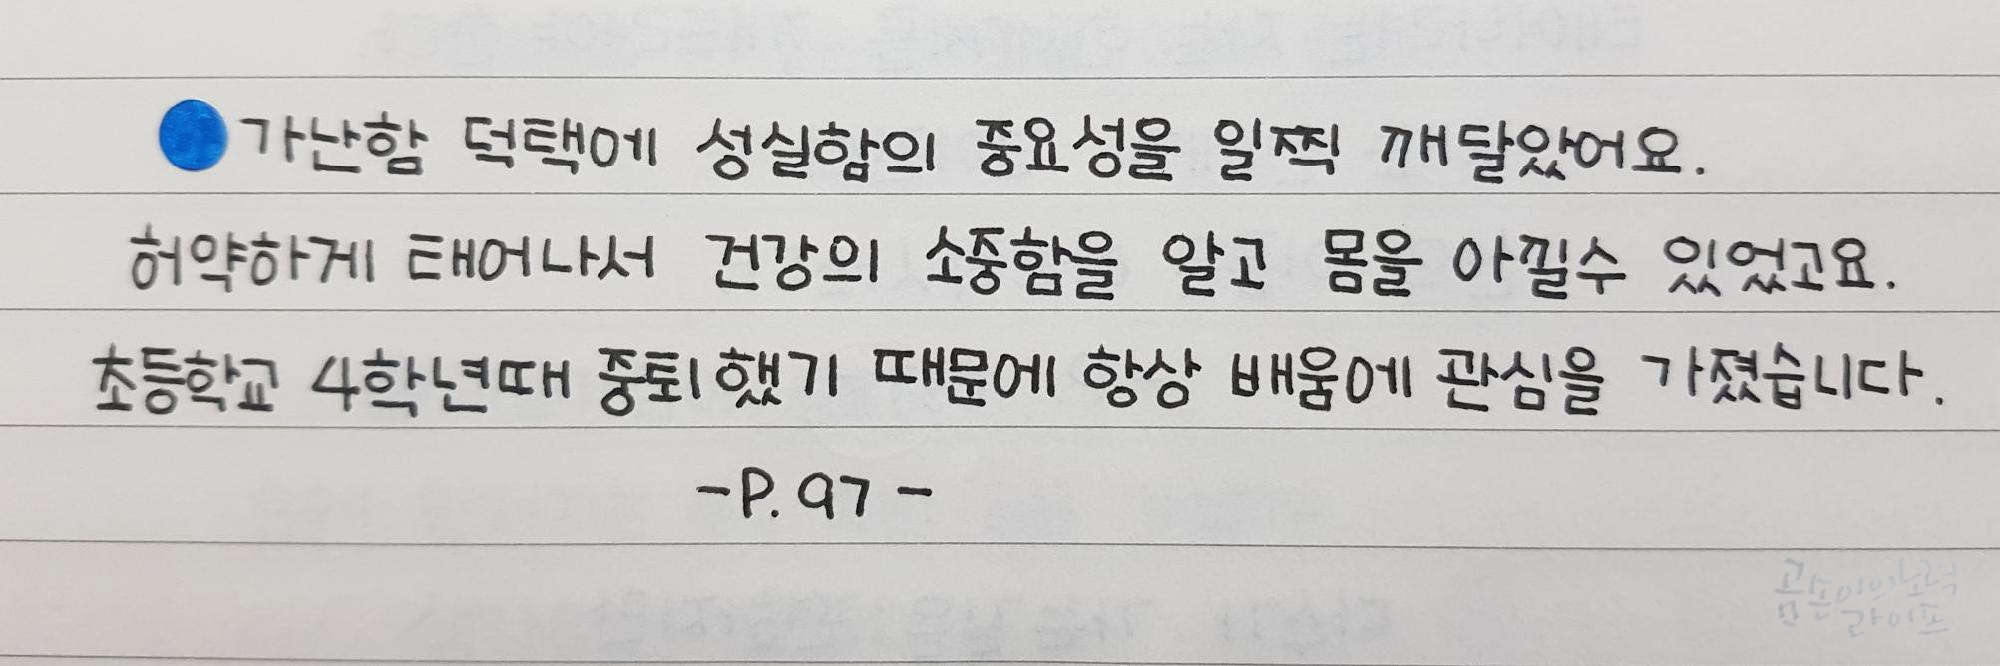 가난함 덕택에 성실함의 중요성을 일찍 깨달았어요.
허약하게 태어나서 건강의 소중함을 알고 몸을 아낄수 있었고요.
초등학교 4학년때 중퇴했기 때문에 항상 배움에 관심을 가졌습니다.
-P. 97 -
곰손이의노력
라이프